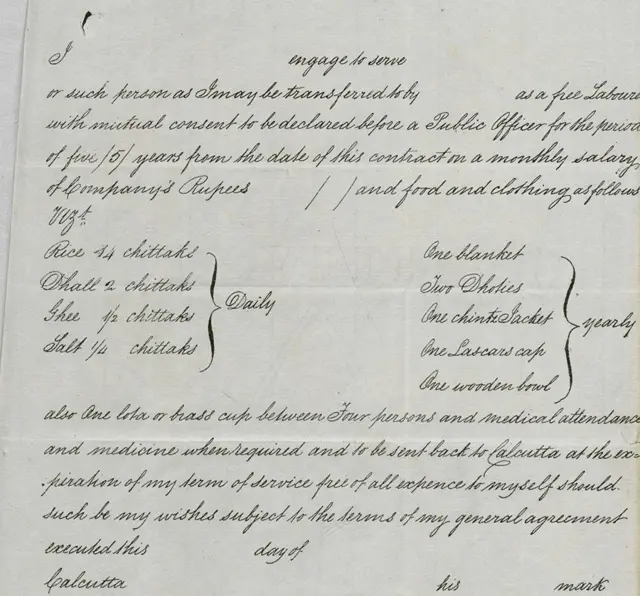 I engage to serve
or such person as I may be transferred to by as a free Laboure
with mutual consent to be declared before a Public Officer for the period
of five /5/ years from the date of this contract on a monthly salary
of Company's Rupees / / and food and clothing as follows
Vizt.
Rice 14 chittaks
Dhall 2 chittaks
Ghee 1/2 chittaks
Salt 1/4 chittaks
Daily
One blanket
Two Dhoties
One chintz Jacket
One Lascars cap
One wooden bowl
yearly
also One lota or brass cup between Four persons and medical attendance
and medicine when required and to be sent back to Calcutta at the ex=
piration of my term of service free of all expence to myself should
such be my wishes subject to the terms of my general agreement
executed this day of
Calcutta his mark